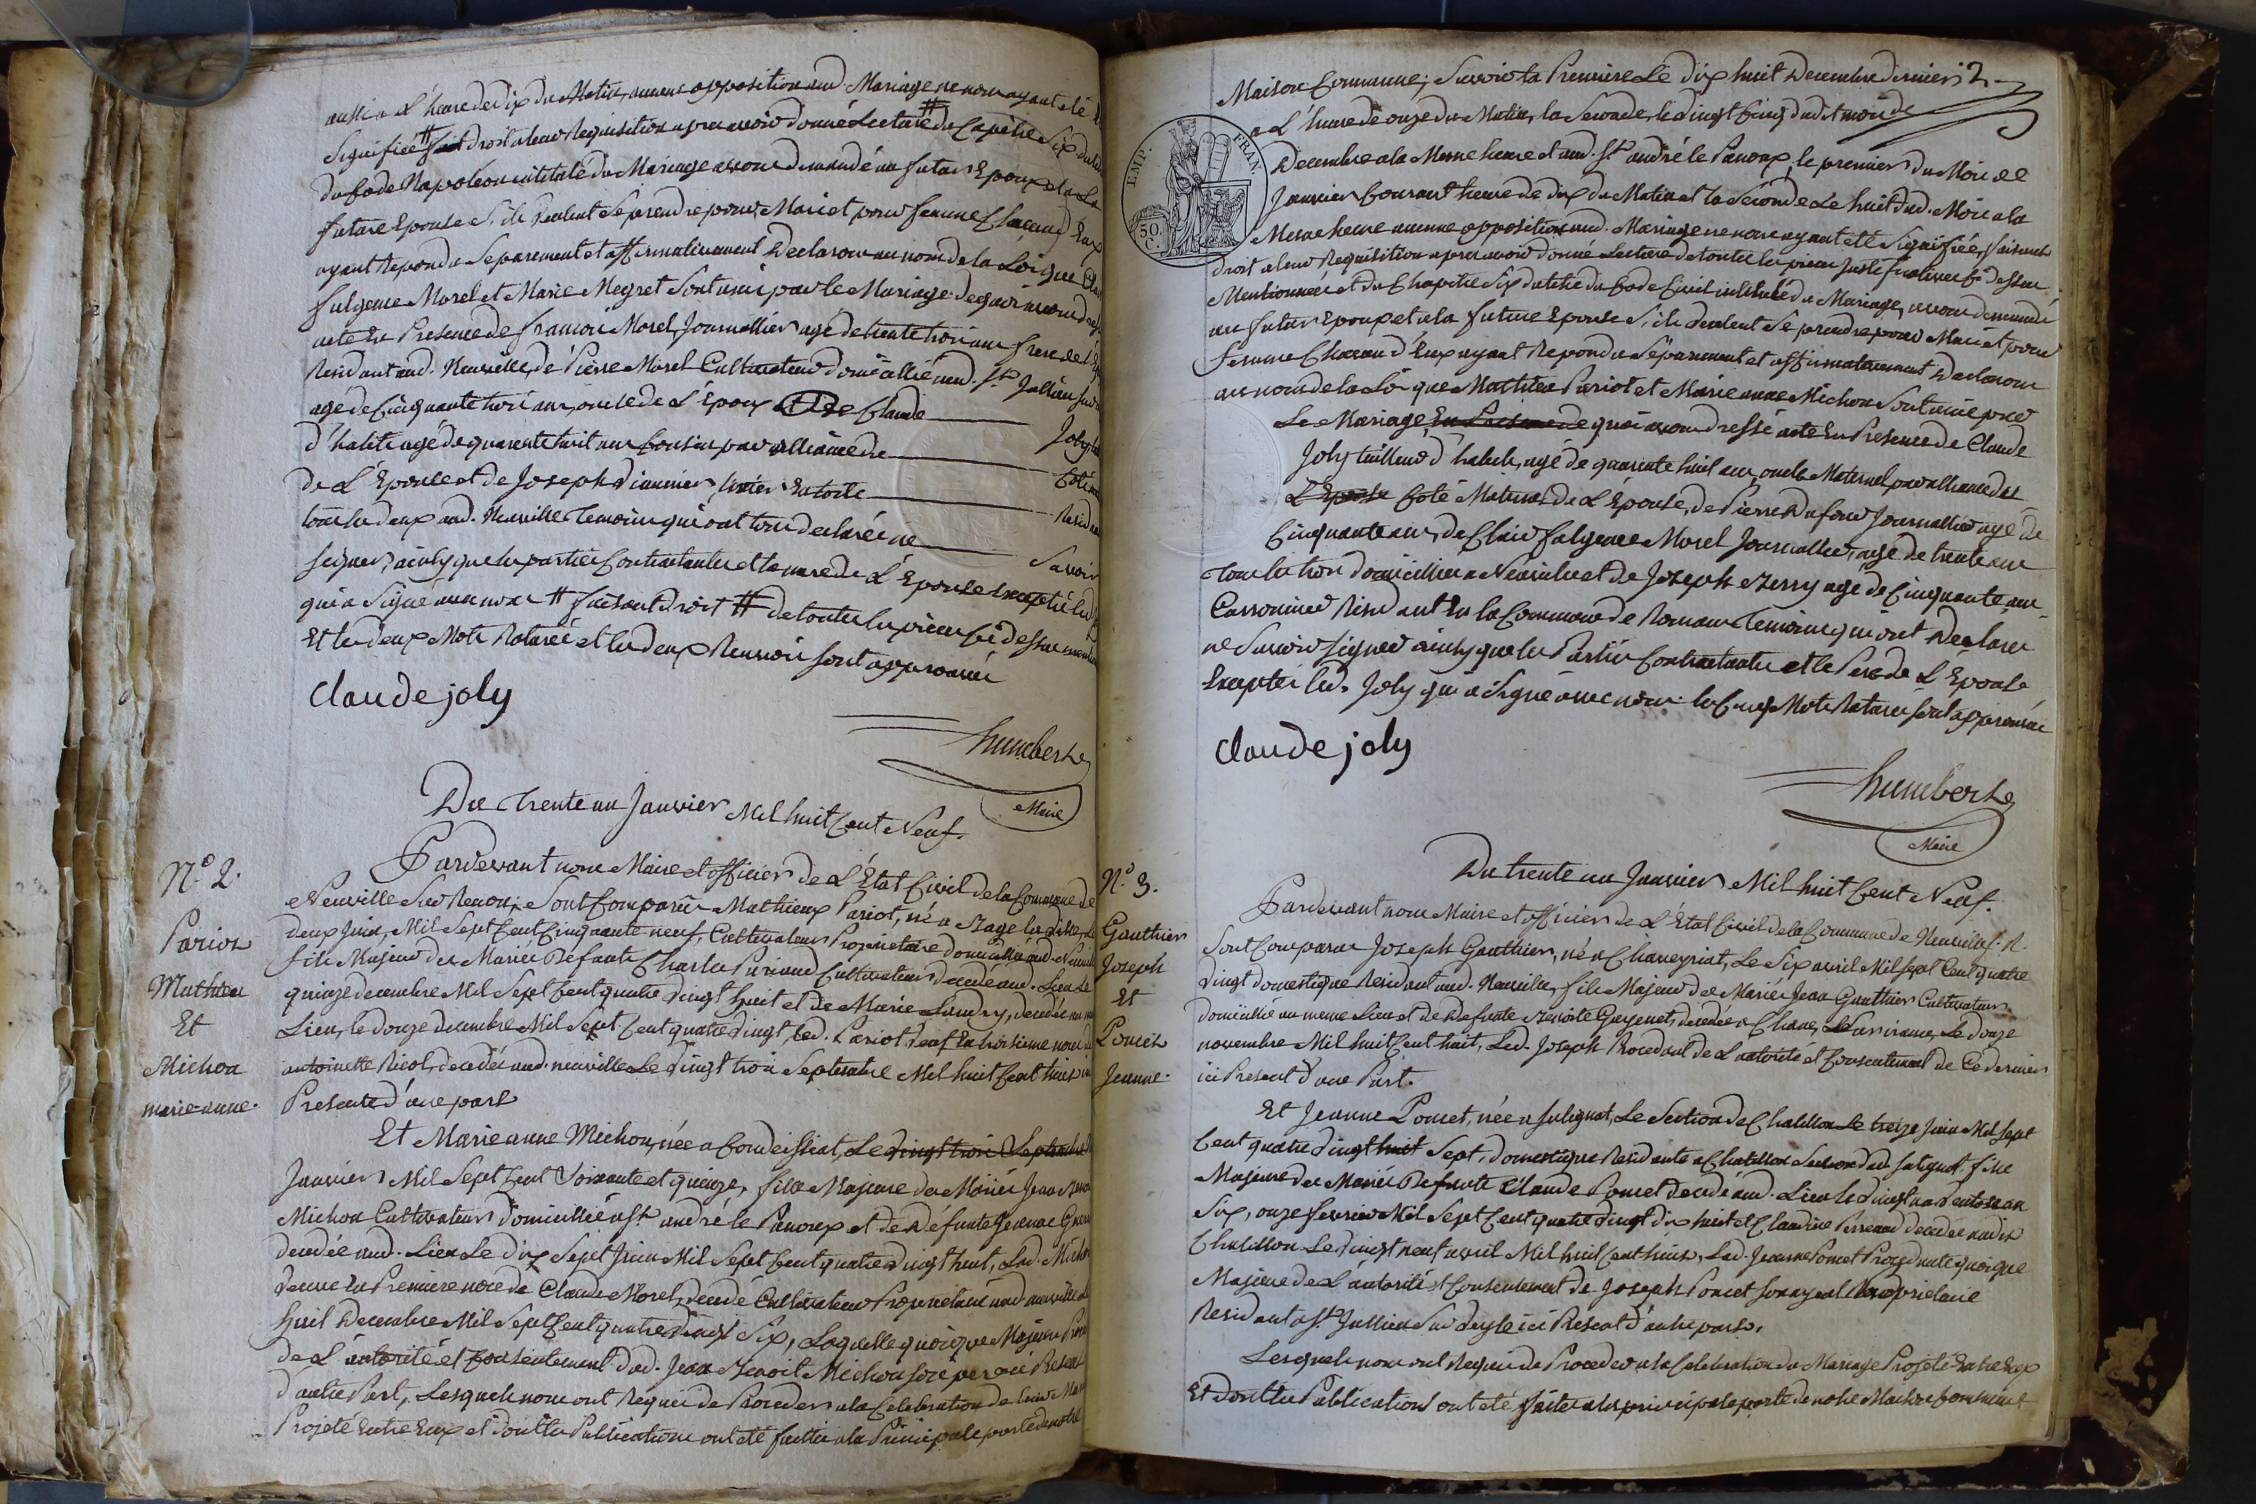 aussi a L'heure de dix du Matin, aucune opposition aud. Mariage ne nous ayant eté
Signifiée # fait droit a leur Requisition apres avoir donné Lecture # du Capitre Six du
du Code Napoleon intitulé du Mariage avons demandé au futur Epoux et a La
future Epouse S'ils veulent Se prendre pour Mari et pour femme Chacun d'Eux
ayant Repondu Separement et affirmativement Declarons au nom de la Loi que
fulgence Morel et Marie Meyret Sont unis par le Mariage de quoi avons dressé
acte En Presence de francois Morel Journallier agé de trente trois ans frere de
Residant aud. Neuville, de Pierre Morel Cultivateur domicillié aud. St Jullien Sur
age de Cinquante trois ans, oncle de L'Epoux de Claude Joly
d'habits agé de quarente huit ans Cousin par alliance du Coté
de L'Epouse et de Joseph tissier En toile Resid
tous les deux aud. Neuville Temoins qui ont tous declarés ne Savoir
signer, ainsy que les parties Contractantes et la mere de L'Epouse Excepté led.
qui a Signé avec nous # faisant droit # de toutes les pieces ci dessus
Et les deux Mots Raturés et les deux Renvois sont approuvés
Claude joly
humbert
Maire
Du Trente un Janvier Mil huit Cent Neuf.
N.º 2.
Pariot
Mathieu
Et
Michon
marie anne.
Pardevant nous Maire et officier de L'État Civil de la Commune de
Neuville Sur Renon, Sont Comparus Mathieux Pariot, né a le
deux Juin, Mil Sept Cent Cinquante neuf, Cultivateur Proprietaire domicillié aud. Neuville
fils Majeur des Mariés Defunts Charles Cultivateur decedé aud. Lieu Le
quinze decembre Mil Sept Cent quatre Vingt huit et de Marie Landry, decedée au
Lieu, le douze decembre Mil Sept Cent quatre Vingt, led. Pariot Veuf En
antoinette Nicol, decedée aud. neuville Le Vingt trois Septembre Mil huit Cent huit
Presente d'une part
Et Marie anne Michon, née a Condeissiat, Le vingt trois Septembre
Janvier Mil Sept Cent Soixante et quinze, fille Majeure des Mariés Jean
Michon Cultivateur domicillié a St. andré le Panoux et de Défunte Jeanne
decedée aud. Lieu Le dix Sept Juin Mil Sept Cent quatre Vingt huit, Lad. Michon
Veuve En Premiere noce de Claude Morel, decedé Cultivateur Proprietaire aud. neuville
huit Decembre Mil Sept Cent quatre Vingt Six, Laquelle quoique Majeure
de L'autorité et Consentement dud. Jean Benoit Michon son pere ici Present
d'autre Part, Lesquels nous ont Requis de Proceder a la Celebration de leur
Projeté Entre Eux et dont les Publications ont eté faittes a la Principale porte de notre
Maison Commune; Savoir la Premiere Le dix huit Decembre dernier 2
a L'heure de onze du Matin, la Seconde, le Vingt Cinq dudit mois de
Decembre a la Meme heure et aud. St. andré le Panoux, le premier du Mois de
Janvier Courant heure de dix du Matin et la Seconde Le huit dud. Mois a la
EMP. FRAN.
50 C.
Meme heure aucune opposition aud. Mariage ne nous ayant eté Signifiée, faisant
droit a leur Requisition apres avoir donné Lecture de toutes les pieces Justificatives ci dessus
Mentionnées et du Chapitre Six du titre du Code Civil intitulé du Mariage, avons demandé
au futur Epoux et a la future Epouse S'ils veulent Se prendre pour Mari et pour
femme Chacun d'Eux ayant Repondu Séparement et affirmativement Declarons
au nom de la Loi que Mathieu Pariot et Marie anne Michon Sont unis par
Le Mariage En Presence de quoi avons dressé acte En Presence de Claude
Joly tailleur d'habits, agé de quarente huit ans, oncle Maternel par alliance du
L'Epouse Coté Maternel de L'Épouse, de Pierre Dufour Journallier agé de
Cinquante ans, de Clair fulgence Morel Journallier, agé de trente ans
Tous les trois domicilliés a Neuville et de Joseph agé de Cinquante ans
Residant En la Commune de Romans Temoins qui ont Declarés
ne Savoir Signer ainsy que les Parties Contractantes et le Pere de L'Epouse
Excepté led. Joly qui a Signé avec nous les Cinq Mots Raturés sont approuvés
Claude joly
humbert
Maire
Du trente un Janvier Mil huit Cent Neuf.
N.º 3.
Gauthier
Joseph
Et
Poncet
Jeanne.
Pardevant nous Maire et officier de L'État Civil de la Commune de Neuville S. R.
Sont Comparus Joseph Gauthier, né a Chaveyriat, Le Six avril Mil sept Cent quatre
Vingt domestique Residant aud. Neuville, fils Majeur des Mariés Jean Gauthier Cultivateur
domicillié au meme Lieu et de Defunte Benoite decedée a Le douze
novembre Mil huit Cent huit, Led. Joseph Procedant de L'autorité et Consentement de Ce dernier
ici Present d'une Part.
Et Jeanne Poncet, née a Sulignat, Le Section de Chatillon Le treize Juin Mil sept
Cent quatre Vingt huit Sept, domestique Residante a Chatillon Section dud. Sulignat fille
Majeure des Mariés Defunts Claude Poncet decedé aud. Lieu le Vingt
Six, onze fevrier Mil Sept Cent quatre Vingt dix huit et Claudine decedée audit
Chatillon Le Vingt neuf avril Mil huit Cent huit, Lad. Jeanne Poncet Procedante quoique
Majeure de L'autorité et Consentement de Joseph Poncet son ayeul Proprietaire
Residant a St. Jullien Sur Veyle ici Present d'autre part.
Lesquels nous ont Requis de Proceder a la Celebration du Mariage Projeté Entre Eux
Et dont les Publications ont eté faites a la principale porte de notre Maison Commune